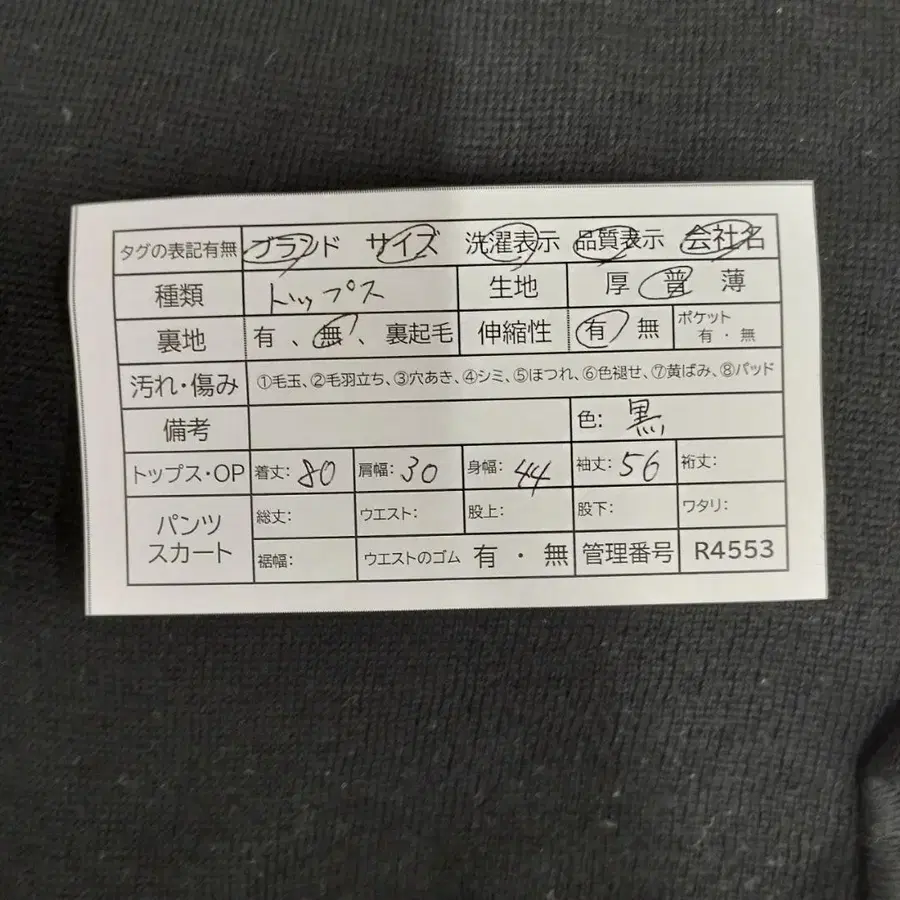 タグの表記有無 ブランド サイズ 洗濯表示 品質表示 会社名
種類 トップス 生地 厚 普 薄
裏地 有 、無、裏起毛 伸縮性 有 無 ポケット 有・無
汚れ・傷み ①毛玉、②毛羽立ち、③穴あき、④シミ、⑤ほつれ、⑥色褪せ、⑦黄ばみ、⑧パッド
備考 色: 黒
トップス・OP 着丈: 80 肩幅: 30 身幅: 44 袖丈: 56 裄丈:
パンツ スカート 総丈: ウエスト: 股上: 股下: ワタリ:
裾幅: ウエストのゴム 有・無 管理番号 R4553